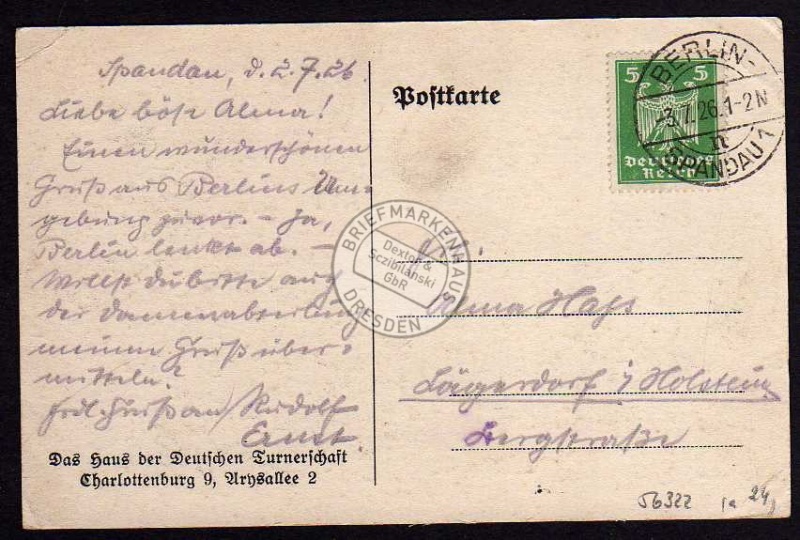 Spandau, d. 2.7.26
Liebe böse Alma!
Einen wunderschönen
Gruß aus Berlins Um-
gebung zuvor. – Ja,
Berlin lenkt ab. –
Willst du bitte auch
der Damenabteilung
meinen Gruß über-
mitteln?
Frdl. Gruß an Rudolf
Ernst
Das Haus der Deutschen Turnerschaft
Charlottenburg 9, Arysallee 2
Postkarte
5 5
Deutsches
Reich
BERLIN-
-3.7.26.1-2N
n
SPANDAU 1
BRIEFMARKENHAUS
Dexler &
Sczibilanski
GbR
DRESDEN
Alma Haß
Lägerdorf i/Holstein
Bergstraße
56322
24